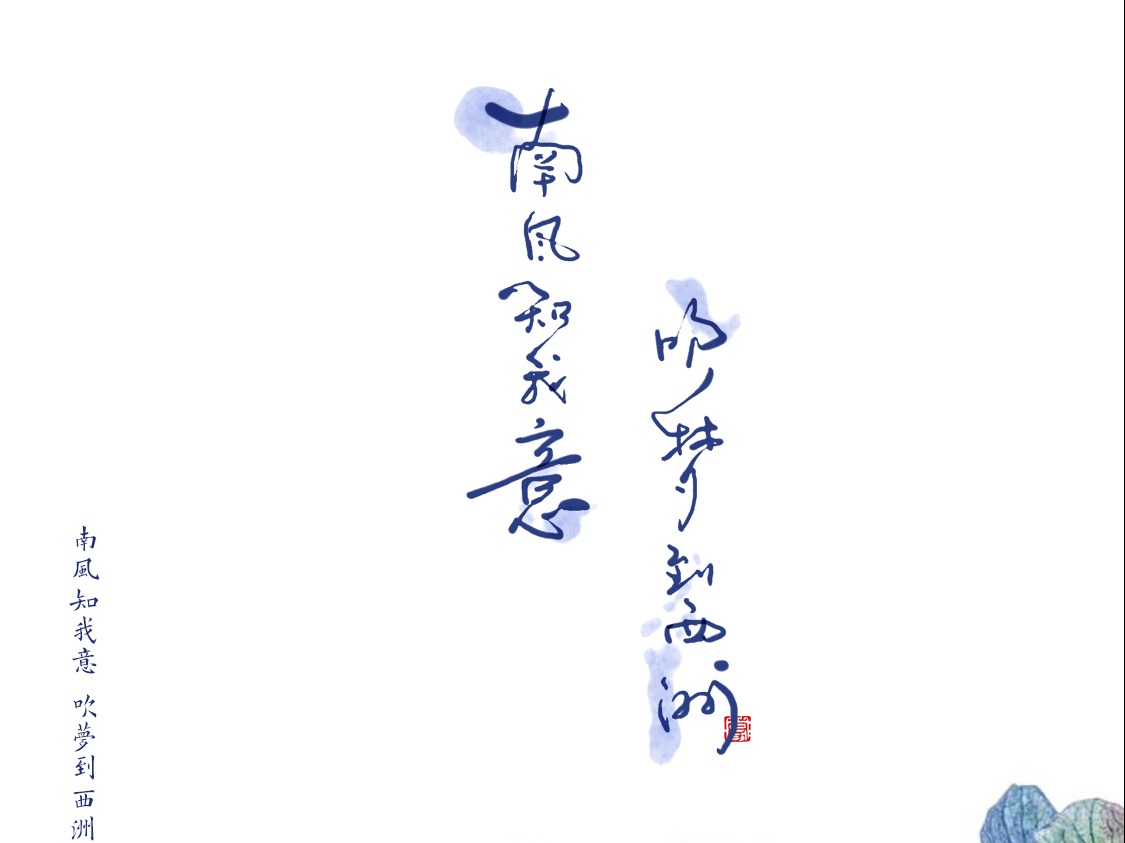 南风知我意
吹梦到西洲
南風知我意 吹夢到西洲